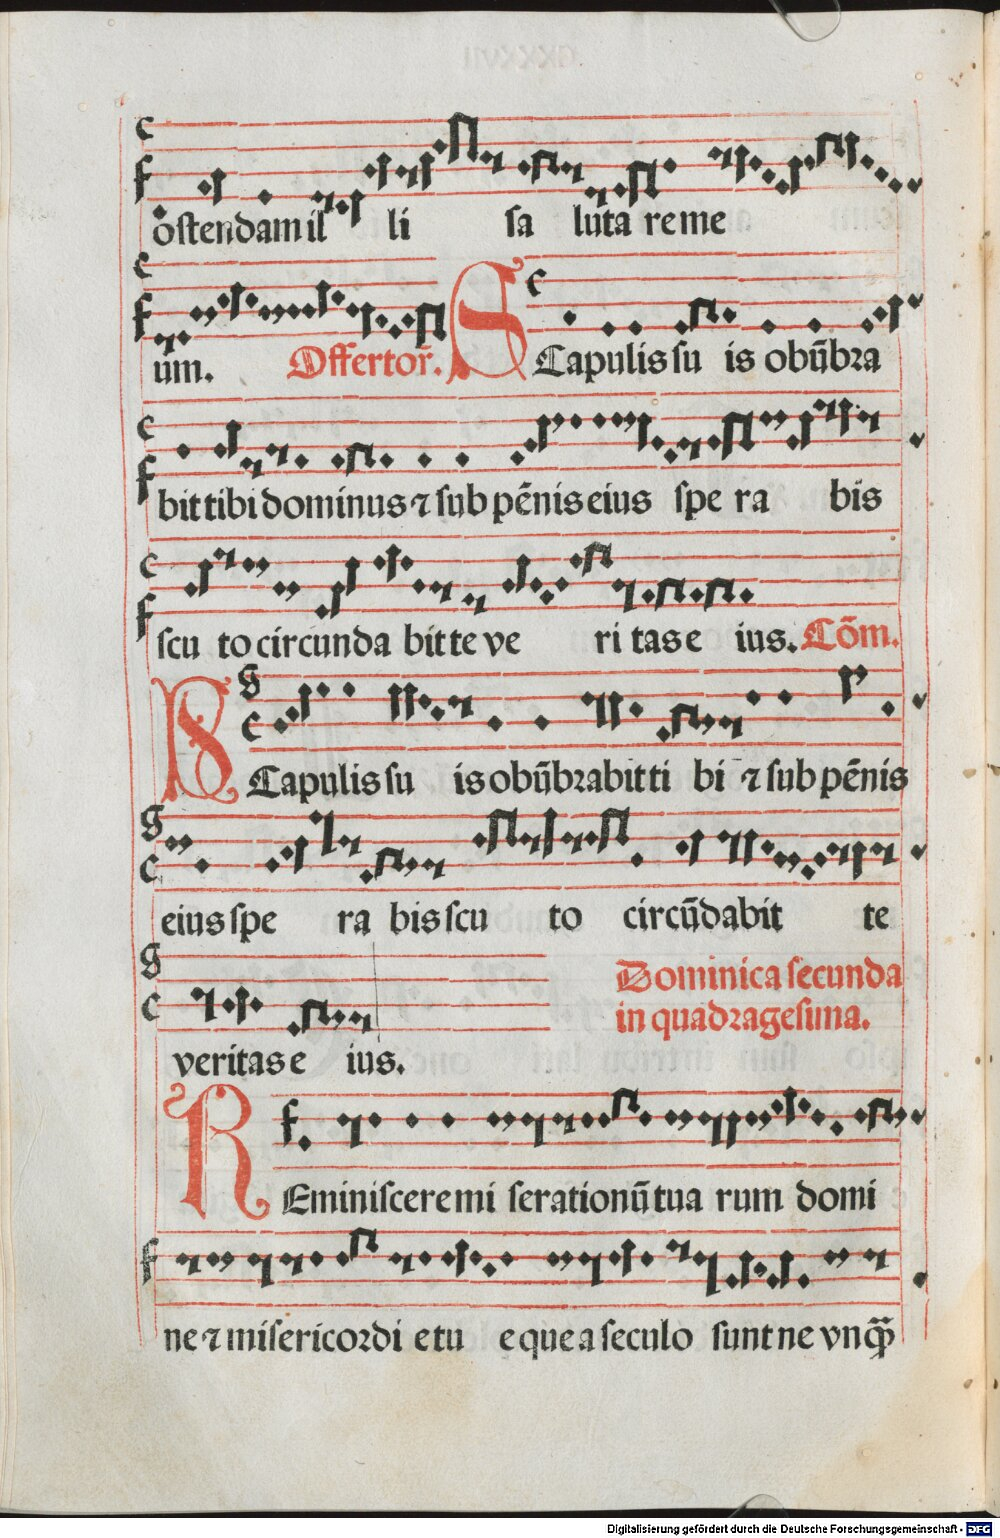 ostendam il li sa luta re me
um. Offertor̄. Scapulis su is obūbra
bit tibi dominus ⁊ sub pēnis eius spe ra bis
scu to circunda bit te ve ri tas e ius. Cōm.
Scapulis su is obūbrabit ti bi ⁊ sub pēnis
eius spe ra bis scu to circūdabit te
Dominica secunda
in quadragesima.
veritas e ius.
Reminiscere mi serationū tua rum domi
ne ⁊ misericordi e tu e que a seculo sunt ne vnq̄ꝫ
Digitalisierung gefördert durch die Deutsche Forschungsgemeinschaft - DFG